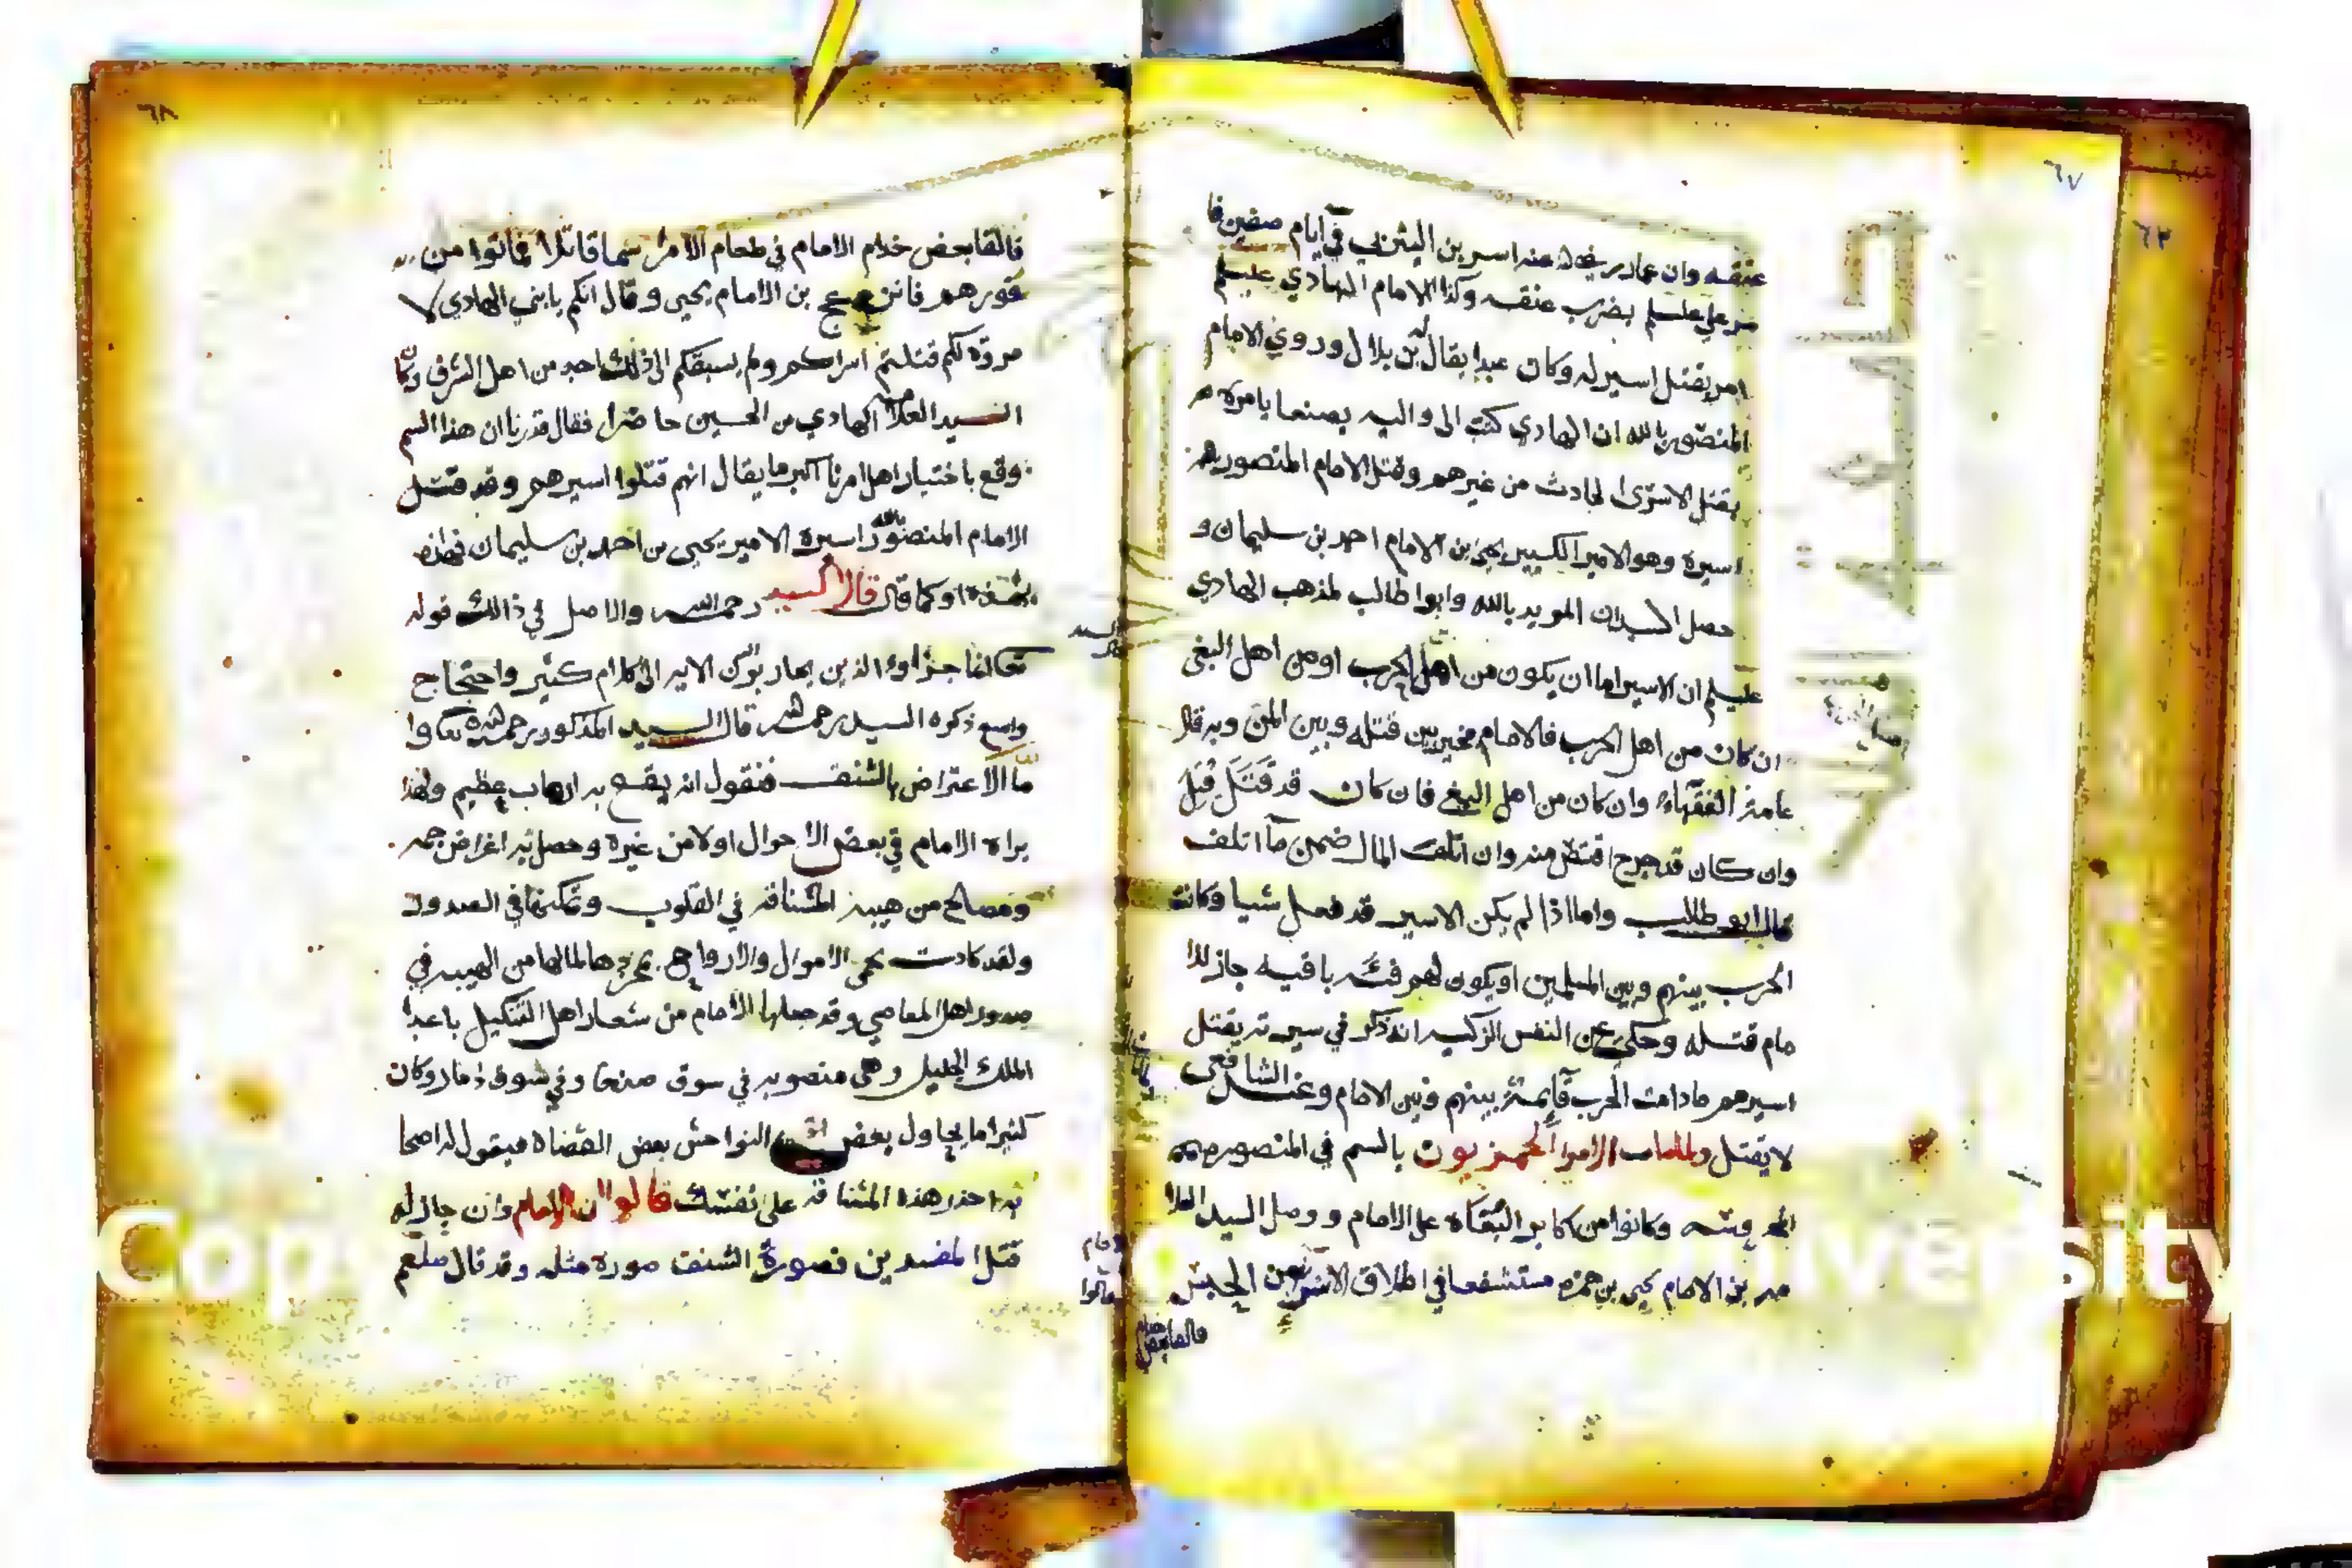 ٦٧
عنقه وان عمار رضي الله عنه اسر بن اليثربي في ايام صفين فا
مر علي عليلم بضرب عنقه وكذا الامام الهادي عليلم
امر بقتل اسير له وكان عبدا يقال له بن بلال وروي الامام
المنصور بالله ان الهادي كتب الى واليه بصنعا يامره
بقتل الاسرى لحادث من غيرهم وقتل الامام المنصور
اسيره وهو الامير الكبير يحيى بن الامام احمد بن سليمان و
حصل السيدان المويد بالله وابوا طالب لمذهب الهادي
عليلم ان الاسير اما ان يكون من اهل الحرب او من اهل البغي
ان كان من اهل الحرب فالامام مخير بين قتله وبين المن وبه قال
عامة الفقهاء وان كان من اهل البغي فان كان قد قَتَلَ قُتِلَ
وان كان قد جرح اقتص منه وان اتلف المال ضمن ما اتلف
قال ابو طالب واما اذا لم يكن الاسير قد فعل شيا وكانت
الحرب بينهم وبين المسلمين او يكون لهم فئه باقيه جاز للا
مام قتله وحكي عن النفس الزكيه انه ذكر في سيرته يقتل
اسيرهم ما دامت الحرب قائمة بينهم وبين الامام وعند الشافعي
لا يقتل ولما مات الامرا الحمزيون بالسم في المنصوره
المحروسه وكانوا من اكابر البغاه على الامام ووصل السيد العلا
مه بن الامام يحيى بن حمزه مستشفعا في اطلاق الاسرا من الحبس
فالقا بعض خدام
٦٨
فالقا بعض خدام الامام في طعام الامرا سما قاتلا فماتوا من
فورهم فانزعج بن الامام يحيى وقال انكم يا بني الهادي لا
مروه لكم قتلتم اسراكم ولم يسبقكم الى ذلك احد من اهل الشرف وكان
السيد العلامه الهادي بن الحسين حاضرا فقال قدرنا ان هذا السم
وقع باختيار اهل امرنا اكبر ما يقال انهم قتلوا اسيرهم وقد قتل
الامام المنصور بالله اسيره الامير يحيى بن احمد بن سليمان فهذه
بهذه او كما قال قال السيد رحمه الله والاصل في ذالك قوله
تعالى انما جزاؤا الذين يحاربون الايه الى كلام كثير واحتجاج
واسع ذكره السيد رحمه الله قال السيد المذكور رحمه الله تعالى وا
ما الاعتراض بالشنق فنقول انه يقع به ارهاب عظيم ولهذا
يراه الامام في بعض الاحوال اولا من غيره وحصل به اغراض جمه
ومصالح من هيبة المشناقه في القلوب وتمكنها في الصدور
ولقد كادت تحمي الاموال والارواح بمجردها لمالها من الهيبه في
صدور اهل المعاصي وقد جعلها الامام من شعار اهل التنكيل باعدا
الملك الجليل وهي منصوبه في سوق صنعا وفي سوق ذمار وكان
كثيرا ما يحاول بعض النواحش بعض القضاة فيقول له اصحا
به احذر هذه المشناقه على نفسك قالوا ان الامام وان جاز له
قتل المفسدين فصورة الشنق صوره مثله وقد قال صلعم